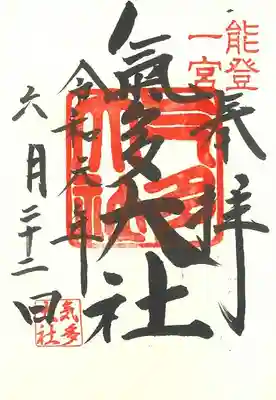 能登
一宮
奉拝
氣多大社
令和元年
六月二十二日
気多
大社